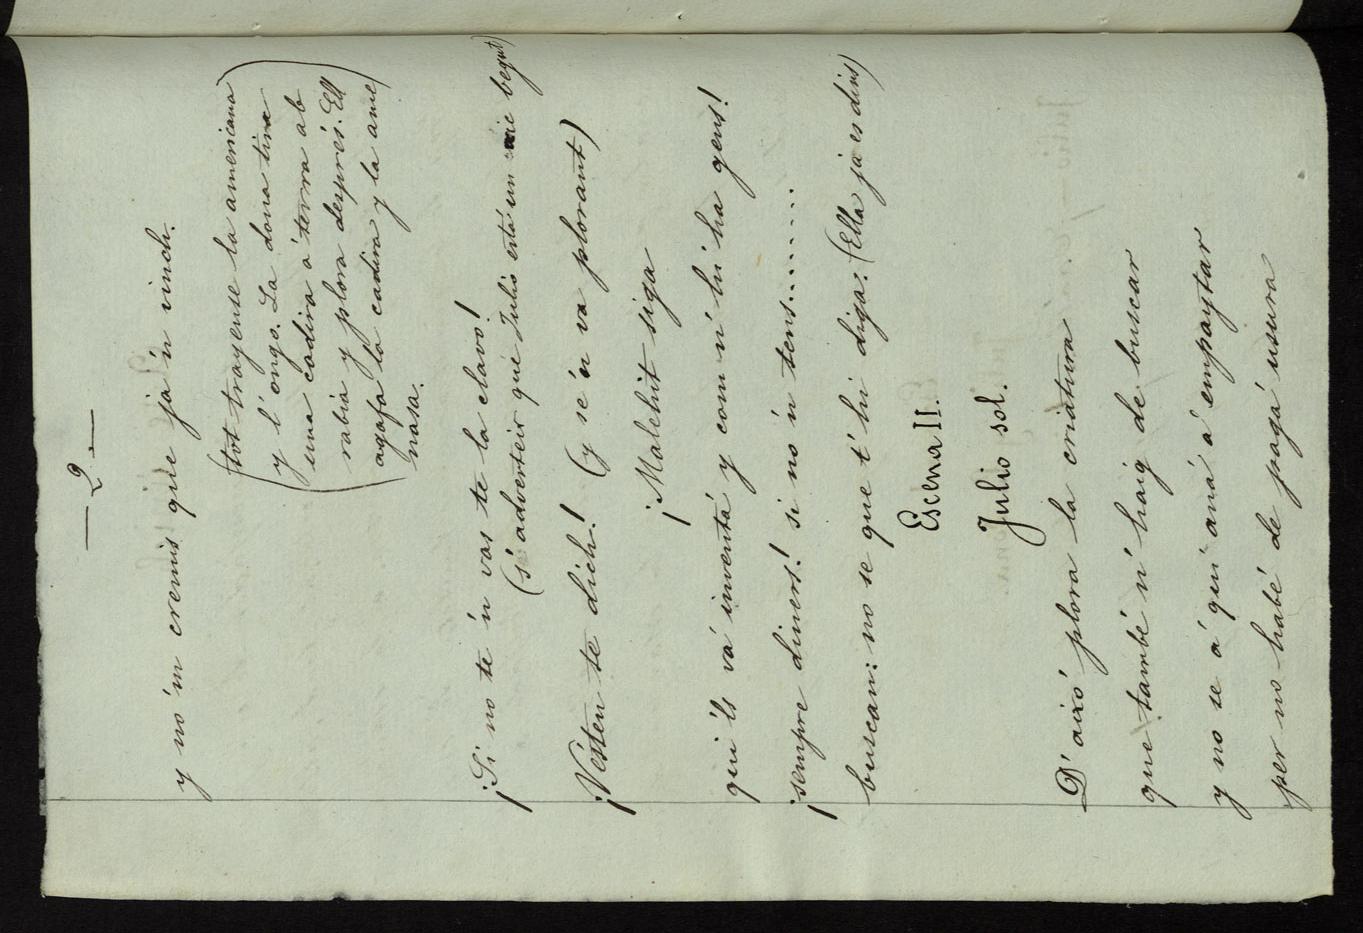 — 2 —
y no 'm cremis que ja 'n vinch.
(tot trayense la americana
y l' ongo. La dona tira
una cadira á terra ab
rabia y plora després. Ell
agafa la cadira y la ame
nasa.)
¡Si no te 'n vas te la clavo!
(s' adverteix que Julio està un xic begut)
¡Vésten te dich! (y se 'n va plorant)
¡Malehit siga
qui 'ls vá inventá y com n' hi ha gens!
¡sempre diners! si no 'n tens.......
buscan: no se que t' hi diga: (Ella ja es dins)
Escena II.
Julio sol.
D' aixó plora la criatura
que també n' haig de buscar
y no se á qui aná á empaytar
per no habé de pagá usura